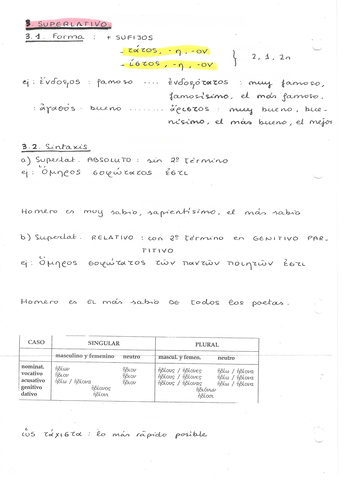 3. SUPERLATIVO.
3.1. Forma : + SUFIJOS
- τάτος, -η, -ον
- ίστος, -η, -ον } 2, 1, 2n
ej : ἔνδοξος : famoso .... ἐνδοξότατος : muy famoso,
famosísimo, el más famoso.
: ἀγαθός · bueno ........ ἄριστος : muy bueno, bue-
nísimo, el más bueno, el mejor
3.2. Sintaxis
a) Superlat. ABSOLUTO : sin 2º término
ej : Ὅμηρος σοφώτατος ἐστι
Homero es muy sabio, sapientísimo, el más sabio
b) Superlat. RELATIVO : con 2º término en GENITIVO PAR-
TITIVO
ej : Ὅμηρος σοφώτατος τῶν παντῶν ποιητῶν ἐστι
Homero es el más sabio DE todos los poetas.
CASO SINGULAR PLURAL
masculino y femenino neutro mascul. y femen. neutro
nominat. ἡδίων ἥδιον ἡδίους / ἡδίονες ἡδίω / ἡδίονα
vocativo ἥδιον ἥδιον ἡδίους / ἡδίονες ἡδίω / ἡδίονα
acusativo ἡδίω / ἡδίονα ἥδιον ἡδίους / ἡδίονας ἡδίω / ἡδίονα
genitivo ἡδίονος ἡδιόνων
dativo ἡδίονι ἡδίοσι
ὡς τάχιστα : lo más rápido posible